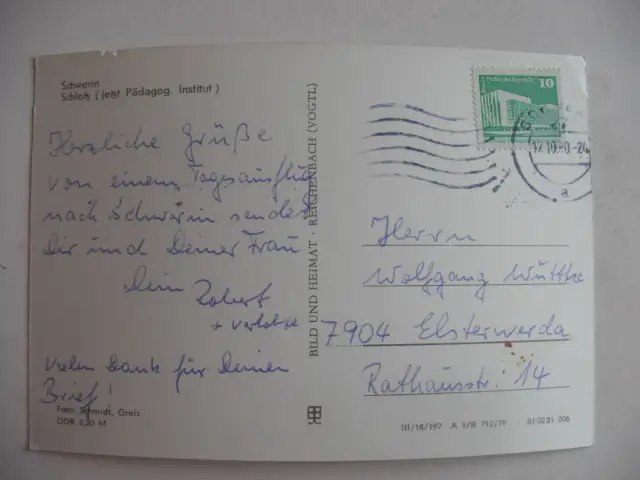 Schwerin
Schloß (jetzt Pädagog. Institut)
Herzliche Grüße
von einem Tagesausflug
nach Schwerin sendet
Dir und Deiner Frau
Dein Robert
Vielen Dank für Deinen
Brief!
Foto: Schmidt, Greiz
DDR 0,20 M
BILD UND HEIMAT · REICHENBACH (VOGTL)
10
Herrn
Wolfgang Wuttke
7904 Elsterwerda
Rathausstr. 14
III/18/197 A 1/B 712/79 01 02 31 206